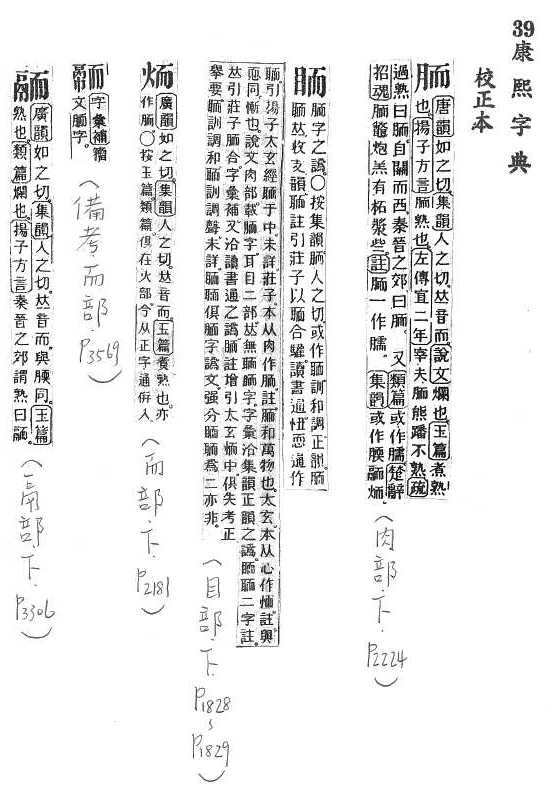 39 康熙字典
校正本
胹
唐韻如之切集韻人之切𠀤音而說文爛也玉篇煮熟
也揚子方言胹熟也左傳宣二年宰夫胹熊蹯不熟疏
過熟曰胹自關而西秦晉之郊曰胹 又類篇或作臑楚辭
招魂胹鼈炮羔有柘漿些註胹一作臑 集韻或作腝
(肉部.下.P2224)
胹字之譌○按集韻胹人之切或作胹訓和調正韻
𠀤收支韻註引莊子以胹合驩讀書通忸恧通作
引揚子太玄經于中未詳莊子本从肉作胹註胹和萬物也太玄本从心作恧註與
恧同慚也說文肉部載胹字耳目二部𠀤無字字彙洽集韻正韻之譌二字註
𠀤引莊子胹合字彙補又洽讀書通之譌註增引太玄中俱失考正
舉要訓調和訓調聲未詳俱胹字譌文强分爲二亦非
(目部.下.P1828~P1829)
廣韻如之切集韻人之切𠀤音而玉篇煑熟也亦
作胹○按玉篇類篇俱在火部今从正字通倂入
(而部.下.P2181)
字彙補籀
文胹字
(備考.而部.P3569)
廣韻如之切集韻人之切𠀤音而與腝同玉篇
熟也類篇爛也揚子方言秦晉之郊謂熟曰
(鬲部.下.P3306)